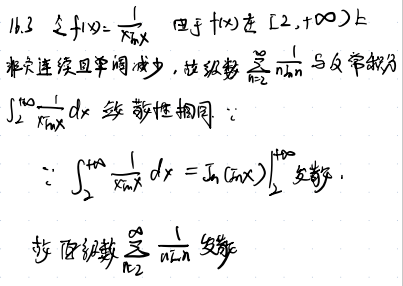 16.3 令f(x)=1/(xlnx) 由于f(x)在[2,+∞)上
非负连续且单调减少,故级数∑_{n=2}^{∞} 1/(nlnn) 与反常积分
∫_2^{+∞} 1/(xlnx) dx 敛散性相同 ∵
∵ ∫_2^{+∞} 1/(xlnx) dx = ln(lnx)|_2^{+∞} 发散.
故 原级数 ∑_{n=2}^{∞} 1/(nlnn) 发散